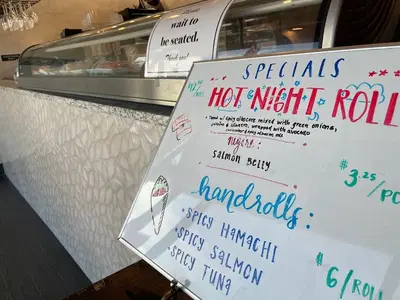 wait to
be seated.
SPECIALS
HOT NIGHT ROLL
spicy albacore mixed with green onions,
wrapped with avocado
nigiri:
SALMON BELLY
$3.25/PC
handrolls:
• SPICY HAMACHI
• SPICY SALMON
• SPICY TUNA
$6/ROLL